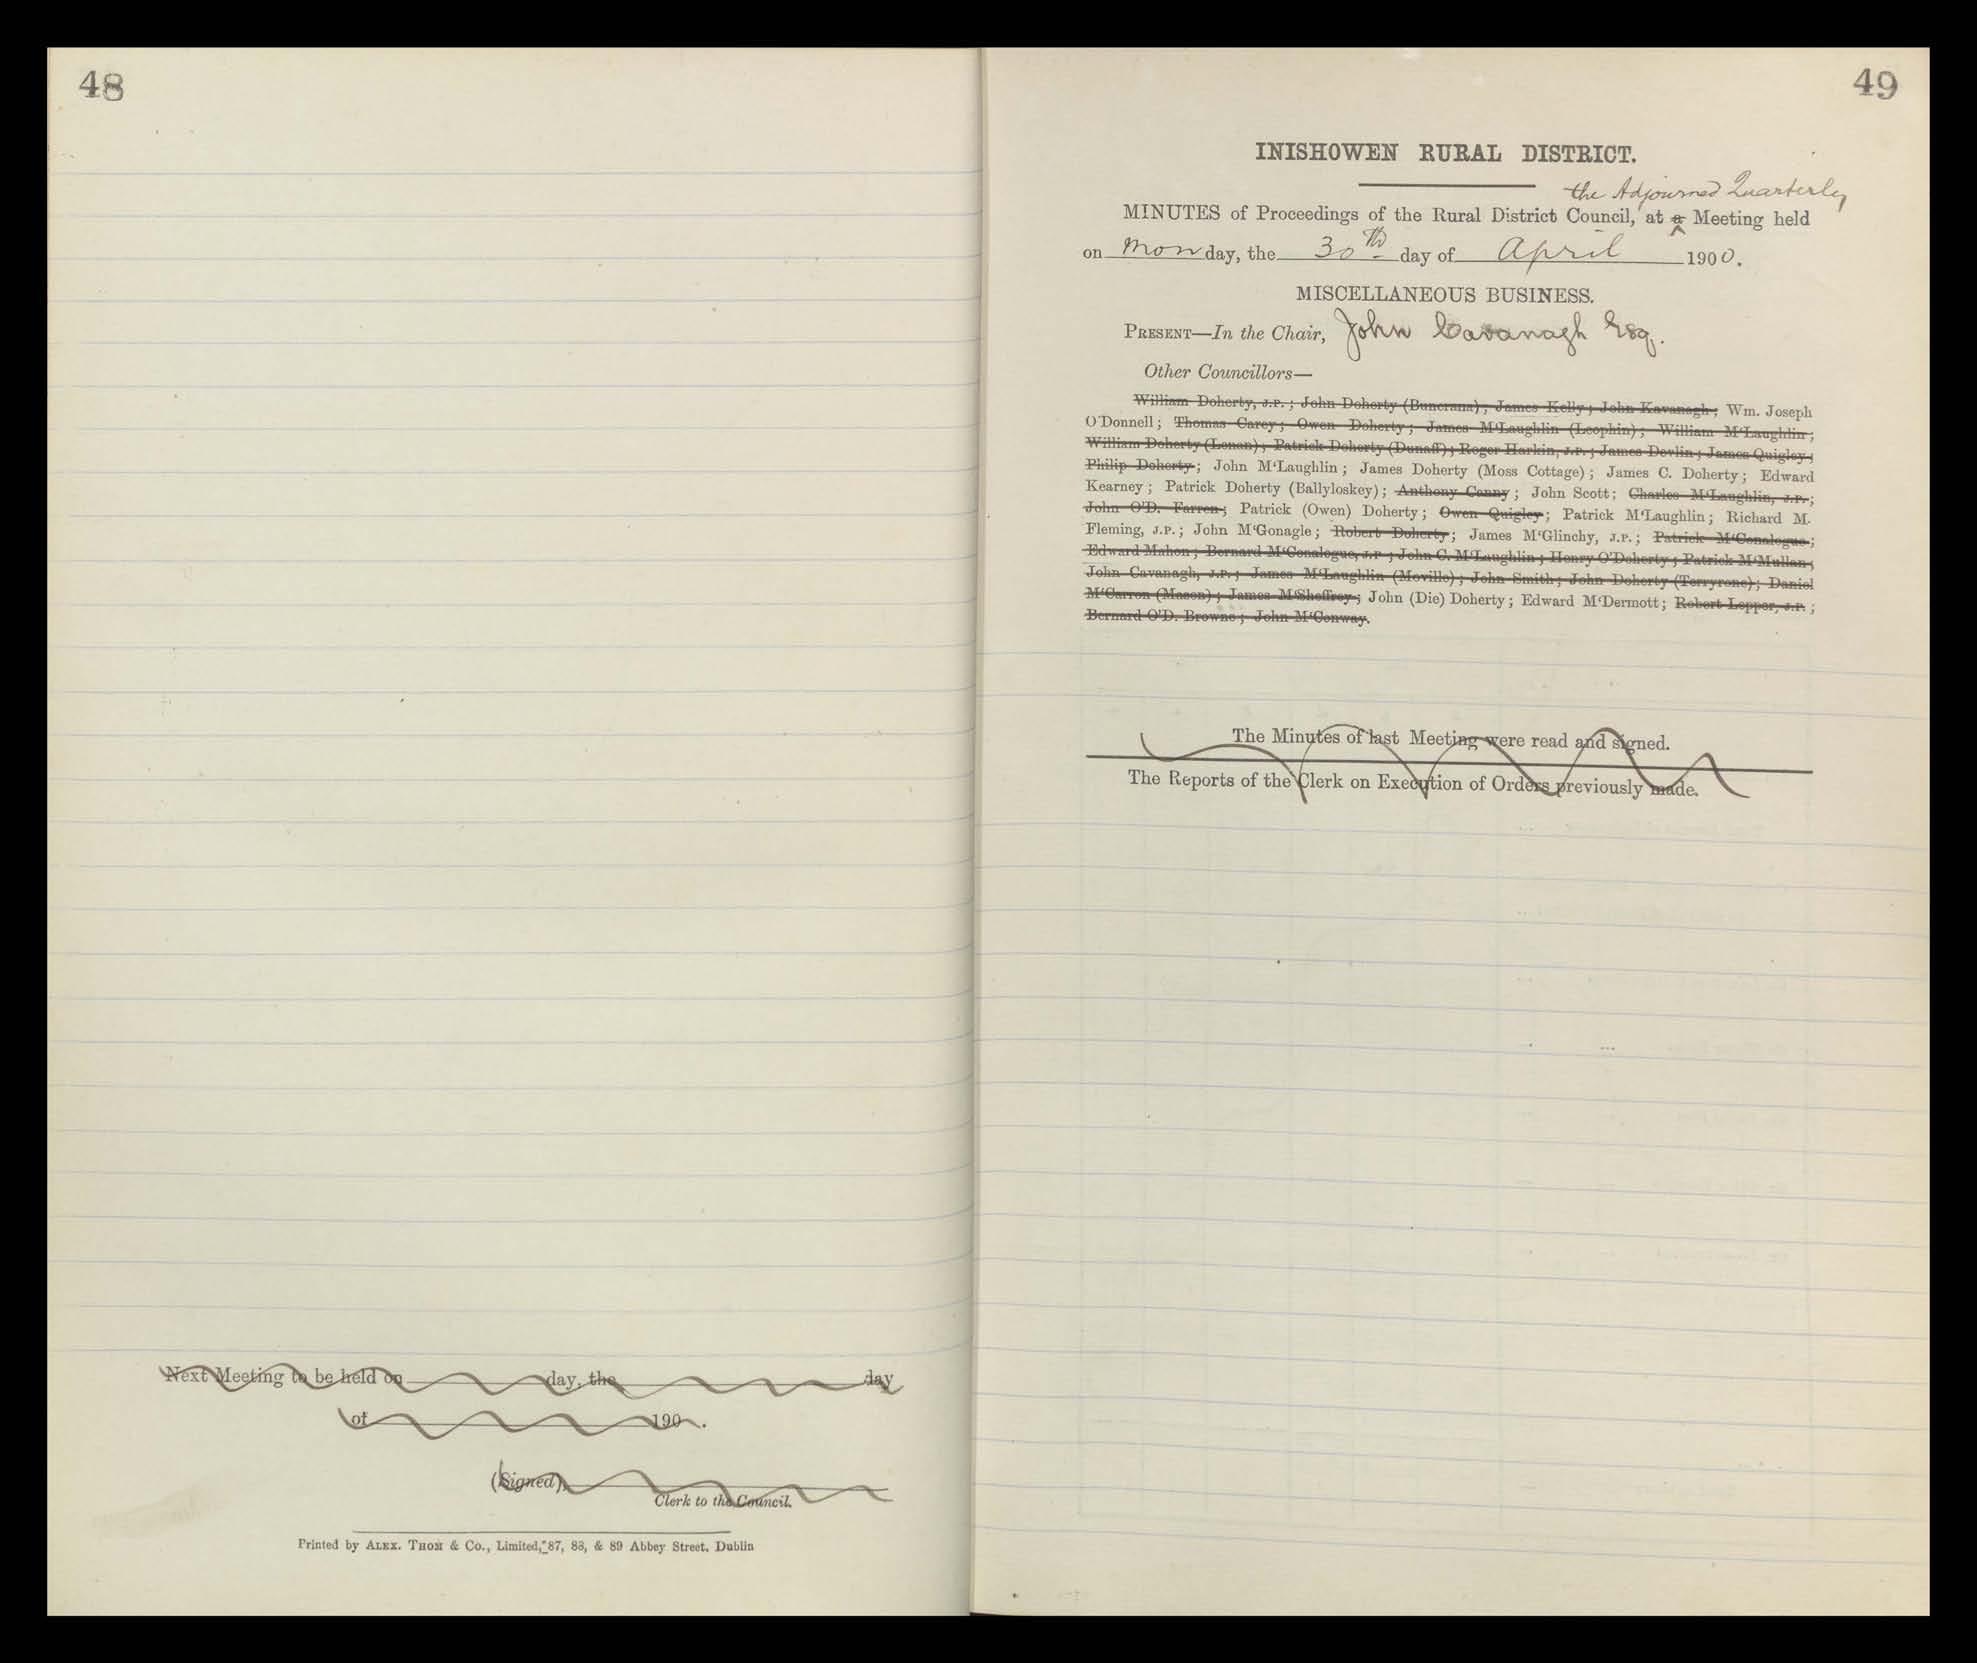 48
Next Meeting to be held on day, the day
of 190 .
(Signed),
Clerk to the Council.
Printed by ALEX. THOM & Co., Limited, 87, 88, & 89 Abbey Street, Dublin
49
INISHOWEN RURAL DISTRICT.
the Adjourned Quarterly
MINUTES of Proceedings of the Rural District Council, at a Meeting held
on Monday, the 30th day of April 1900.
MISCELLANEOUS BUSINESS.
PRESENT—In the Chair, John Cavanagh Esq.
Other Councillors—
William Doherty, J.P.; John Doherty (Buncrana); James Kelly; John Kavanagh; Wm. Joseph
O'Donnell; Thomas Carey; Owen Doherty; James M'Laughlin (Leophin); William M'Laughlin;
William Doherty (Lenan); Patrick Doherty (Dunaff); Roger Harkin, J.P.; James Devlin; James Quigley;
Philip Doherty; John M'Laughlin; James Doherty (Moss Cottage); James C. Doherty; Edward
Kearney; Patrick Doherty (Ballyloskey); Anthony Canny; John Scott; Charles M'Laughlin, J.P.;
John O'D. Farren; Patrick (Owen) Doherty; Owen Quigley; Patrick M'Laughlin; Richard M.
Fleming, J.P.; John M'Gonagle; Robert Doherty; James M'Glinchy, J.P.; Patrick M'Conalogue;
Edward Mahon; Bernard M'Conalogue, J.P.; John C. M'Laughlin; Henry O'Doherty; Patrick M'Mullan;
John Cavanagh, J.P.; James M'Laughlin (Moville); John Smith; John Doherty (Terryrone); Daniel
M'Carron (Mason); James M'Sheffrey; John (Die) Doherty; Edward M'Dermott; Robert Lepper, J.P.;
Bernard O'D. Browne; John M'Conway.
The Minutes of last Meeting were read and signed.
The Reports of the Clerk on Execution of Orders previously made.